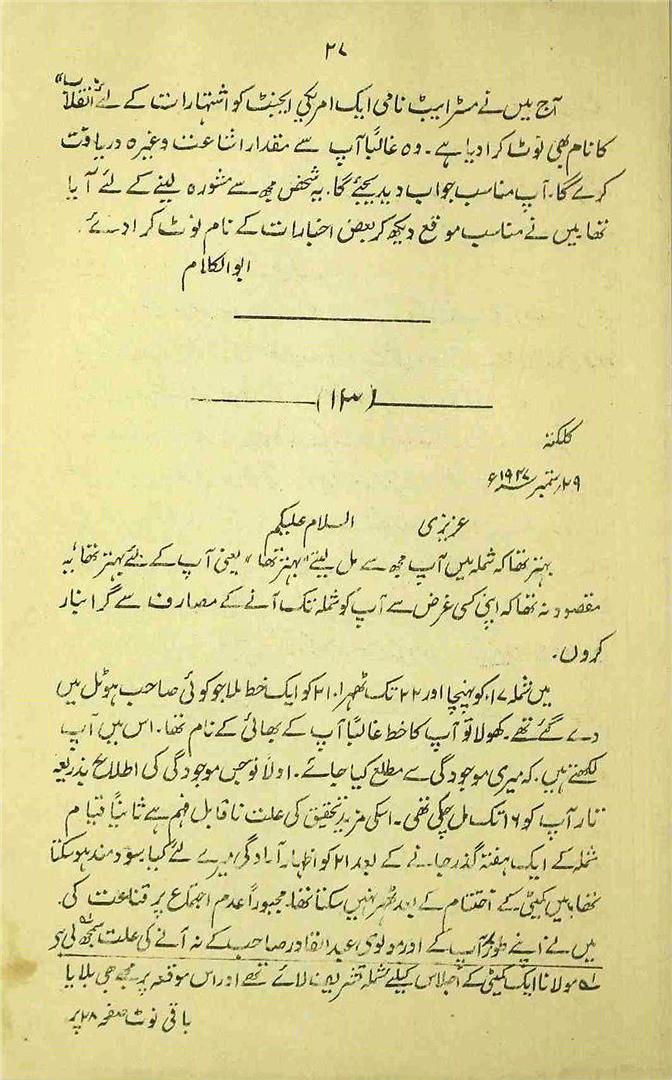 ۲۷
آج میں نے مسٹر ایبٹ نامی ایک امریکی ایجنٹ کو اشتہارات کے لئے "انقلاب"
کا نام بھی نوٹ کرا دیا ہے۔ وہ غالباً آپ سے مقدار اشاعت وغیرہ دریافت
کرے گا۔ آپ مناسب جواب دیدیجئے گا۔ یہ شخص مجھ سے مشورہ لینے کے لئے آیا
تھا میں نے مناسب موقع دیکھ کر بعض اخبارات کے نام نوٹ کرا دئے۔
ابوالکلام
(۱۳)
کلکتہ
۲۹ ستمبر ۱۹۲۷ء
عزیزی السلام علیکم
بہتر تھا کہ شملہ میں آپ مجھ سے مل لیتے "بہتر تھا" یعنی آپ کے لئے بہتر تھا، یہ
مقصود نہ تھا کہ اپنی کسی غرض سے آپ کو شملہ تک آنے کے مصارف سے گرانبار
کروں۔
میں شملہ ۱۷ کو پہنچا اور ۲۲ تک ٹھہرا۔ ۲۱ کو ایک خط ملا جو کوئی صاحب ہوٹل میں
دے گئے تھے۔ کھولا تو آپ کا خط غالباً آپ کے بھائی کے نام تھا۔ اس میں آپ
لکھتے ہیں۔ کہ میری موجودگی سے مطلع کیا جائے۔ اولاً تو جس موجودگی کی اطلاع بذریعہ
تار آپ کو ۱۶ تک مل چکی تھی۔ اسکی مزید تحقیق کی علت ناقابل فہم ہے ثانیاً قیام
شملہ کے ایک ہفتہ گذر جانے کے بعد ۲۱ کو اظہار آمادگی میرے لئے کیا سود مند ہو سکتا
تھا، میں کمیٹی کے اختتام کے بعد ٹھہر نہیں سکتا تھا۔ مجبوراً عدم اجتماع پر قناعت کی۔
میں نے اپنے طور پر آپ کے اور مولوی عبدالقادر صاحب کے نہ آنے کی علت سمجھ لی ہے
لہ مولانا ایک کمیٹی کے اجلاس کیلئے شملہ تشریف لائے تھے اور اس موقعہ پر مجھے بھی بلایا
باقی نوٹ صفحہ ۲۸ پر